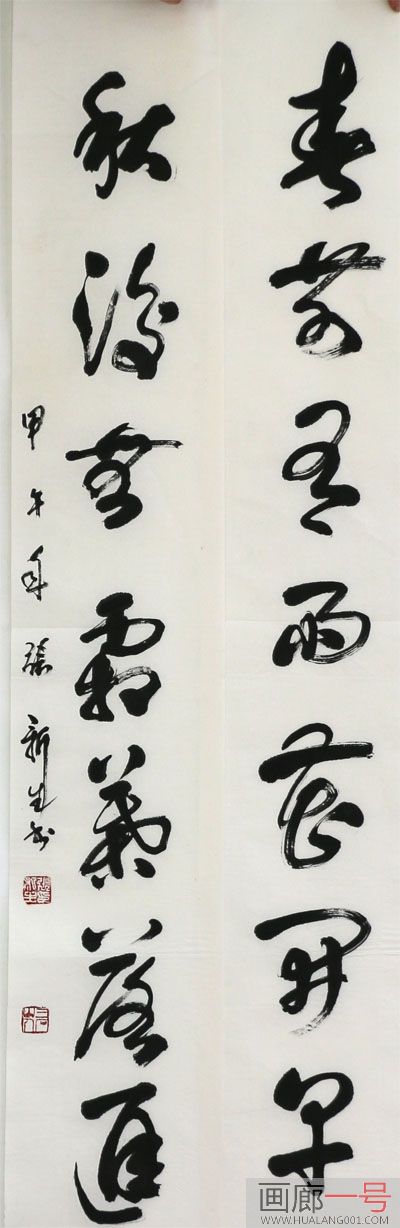 春前有雨花開早
秋後無霜葉落遲
甲午年張新生书
画廊一号
WWW.HUALANG001.COM